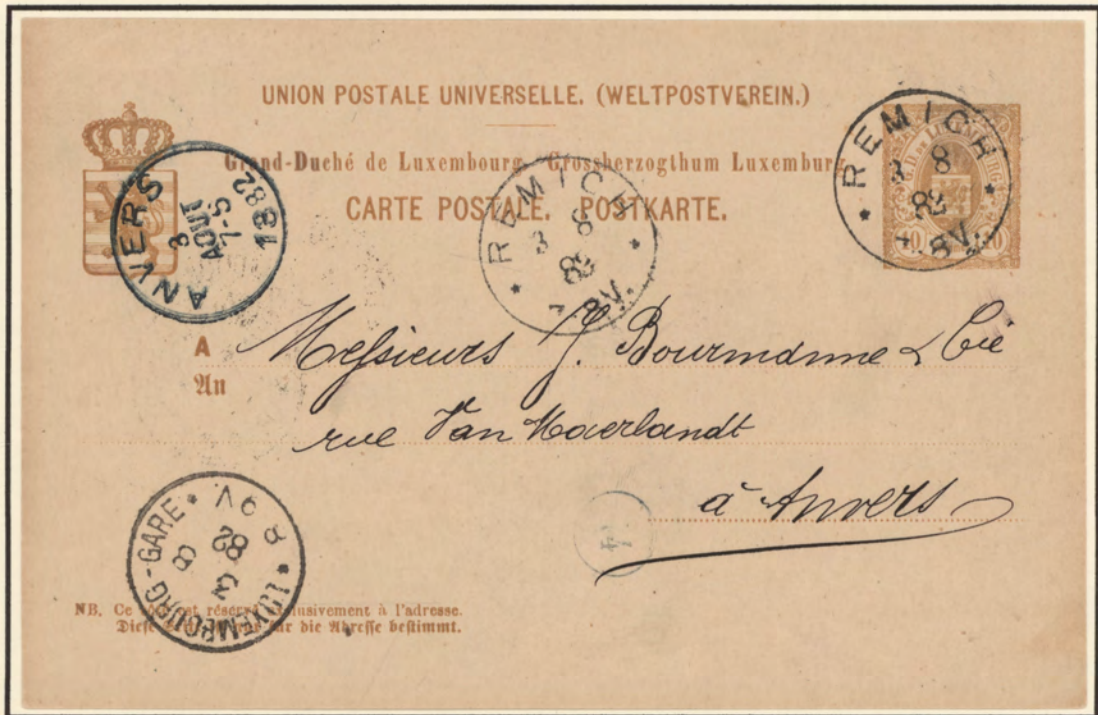 UNION POSTALE UNIVERSELLE. (WELTPOSTVEREIN.)
Grand-Duché de Luxembourg. Grossherzogthum Luxemburg
CARTE POSTALE. POSTKARTE.
REMICH
3 8
82
7-8V.
REMICH
3 8
82
8V.
ANVERS
3
AOUT
7-5
1882
A
An
Messieurs J. Bourmanne & Cie
rue Van Maerlandt
à Anvers
4
LUXEMBOURG-GARE
3 8
82
8 9V
NB. Ce est réservé exclusivement à l'adresse.
Diese für die Adresse bestimmt.